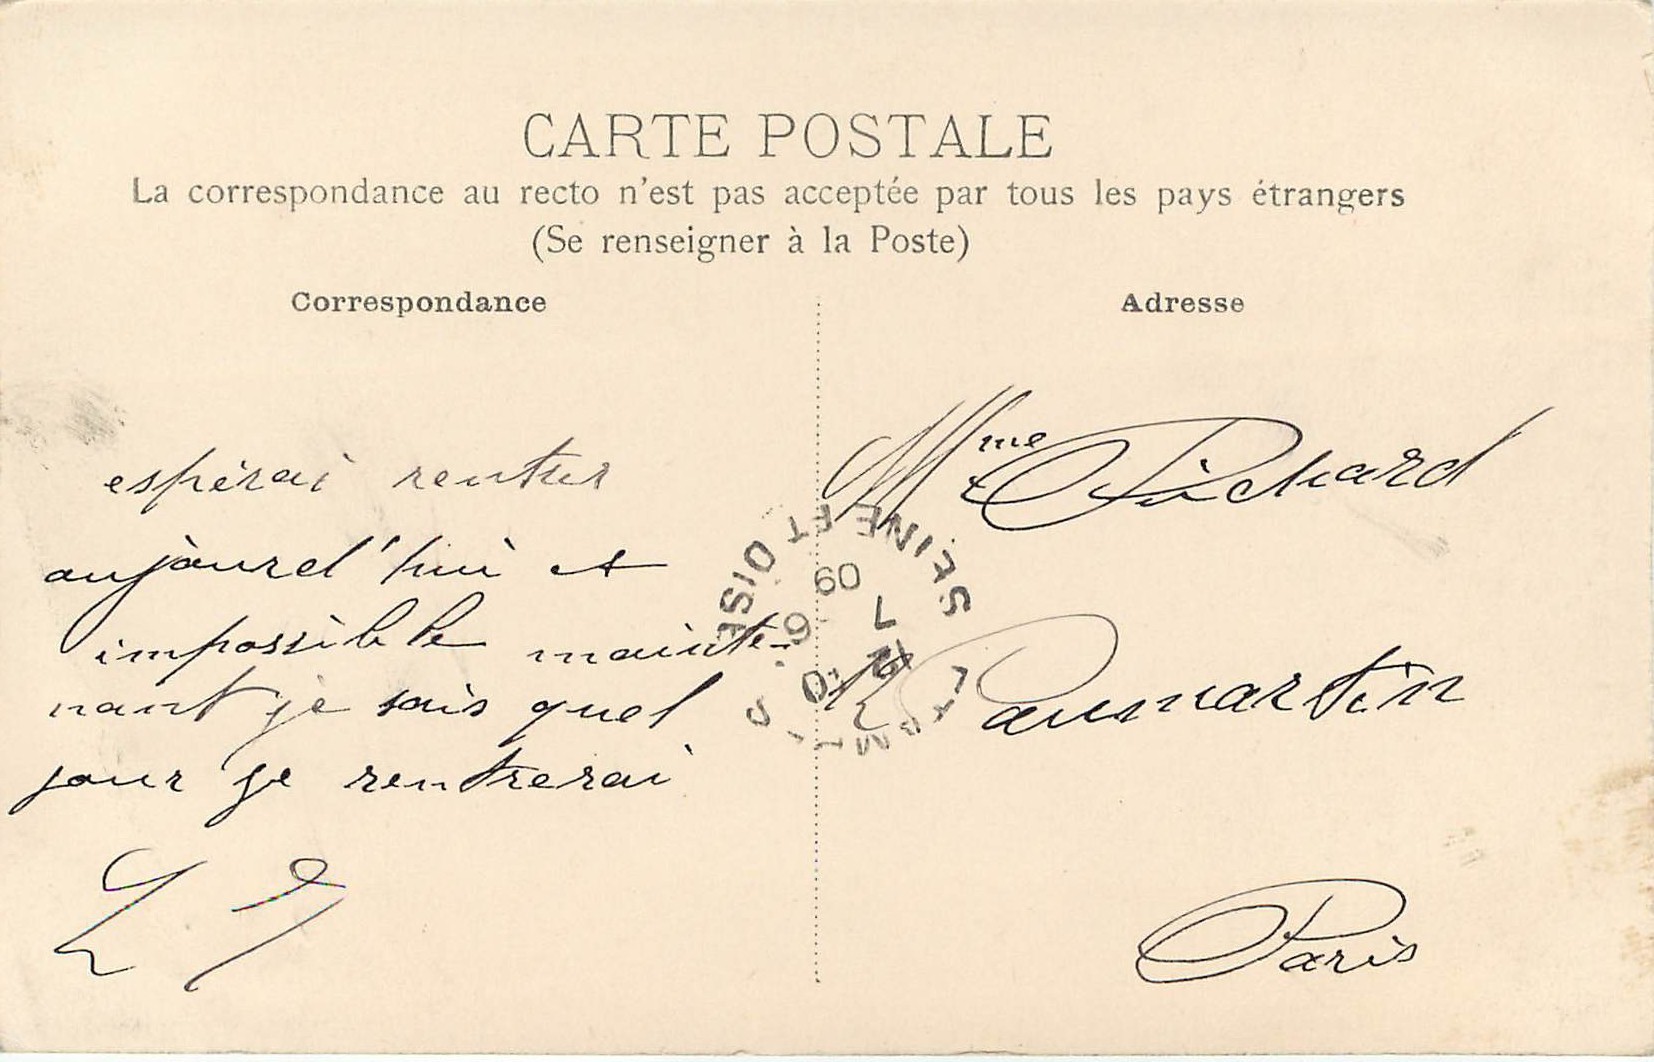 CARTE POSTALE
La correspondance au recto n'est pas acceptée par tous les pays étrangers
(Se renseigner à la Poste)
Correspondance
Adresse
espérai rentrer
aujourd'hui et
impossible mainte-
nant je sais quel
jour je rentrerai
Mme Pichard
Caumartin
Paris
SEINE ET OISE
7
09